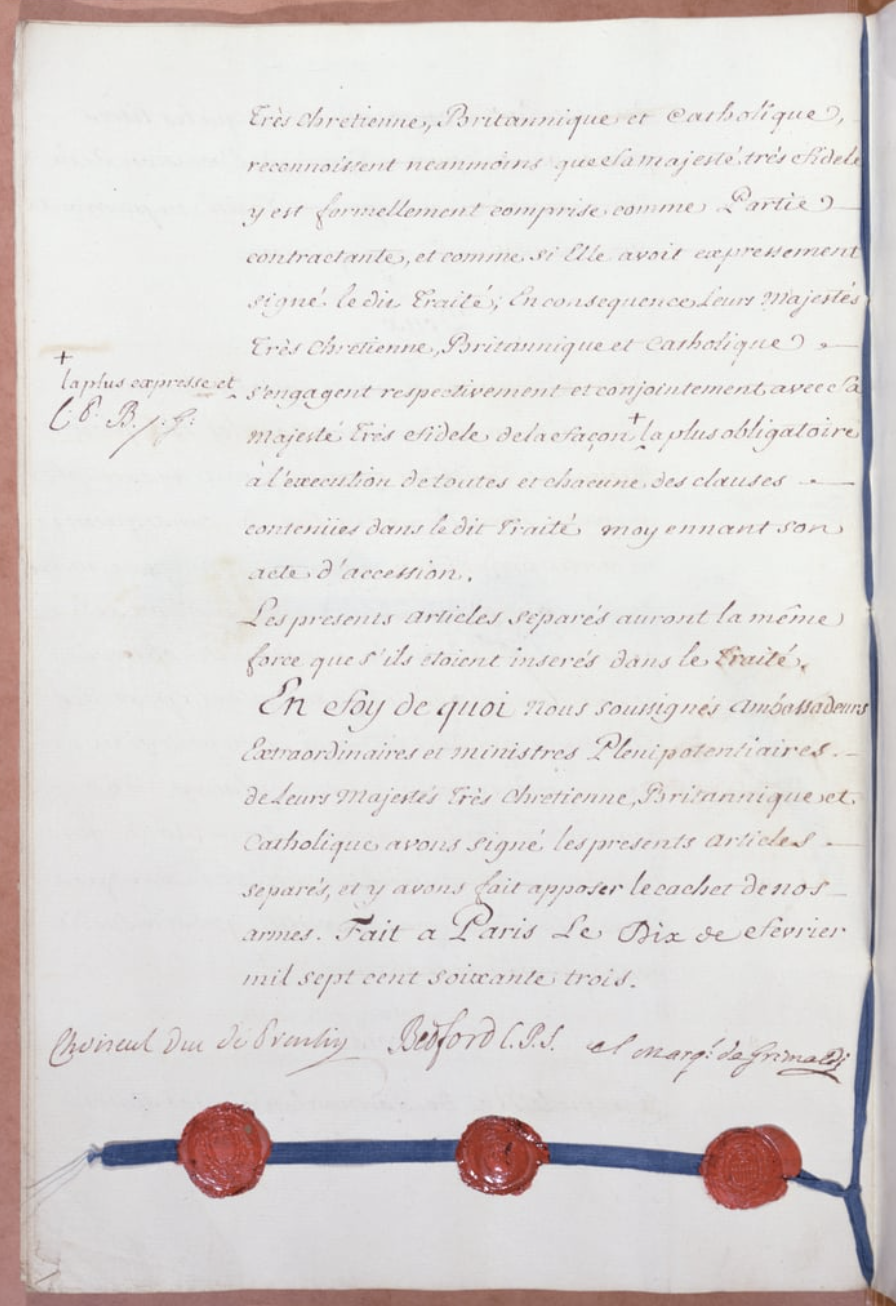 Très Chretienne, Britannique et Catholique,
reconnoissent neanmoins que Sa Majesté très Fidele
y est formellement comprise comme Partie
contractante, et comme si Elle avoit expressement
signé le dit Traité; En consequence Leurs Majestés
Très Chretienne, Britannique et Catholique
+
la plus expresse et
C. P. B. p. G.
s'engagent respectivement et conjointement avec Sa
Majesté Très Fidele de la Façon + la plus obligatoire
à l'execution de toutes et chacune des clauses
contenües dans le dit Traité moyennant son
acte d'accession.
Les presents Articles separés auront la même
force que s'ils etoient inserés dans le Traité.
En Foy de quoi Nous soussignés Ambassadeurs
Extraordinaires et Ministres Plenipotentiaires
de Leurs Majestés Très Chretienne, Britannique et
Catholique avons signé les presents Articles
separés, et y avons fait apposer le cachet de nos
armes. Fait a Paris Le Dix de Fevrier
mil sept cent soixante trois.
Choiseul Duc de Praslin Bedford C.P.S. el Marq.s de Grimaldi